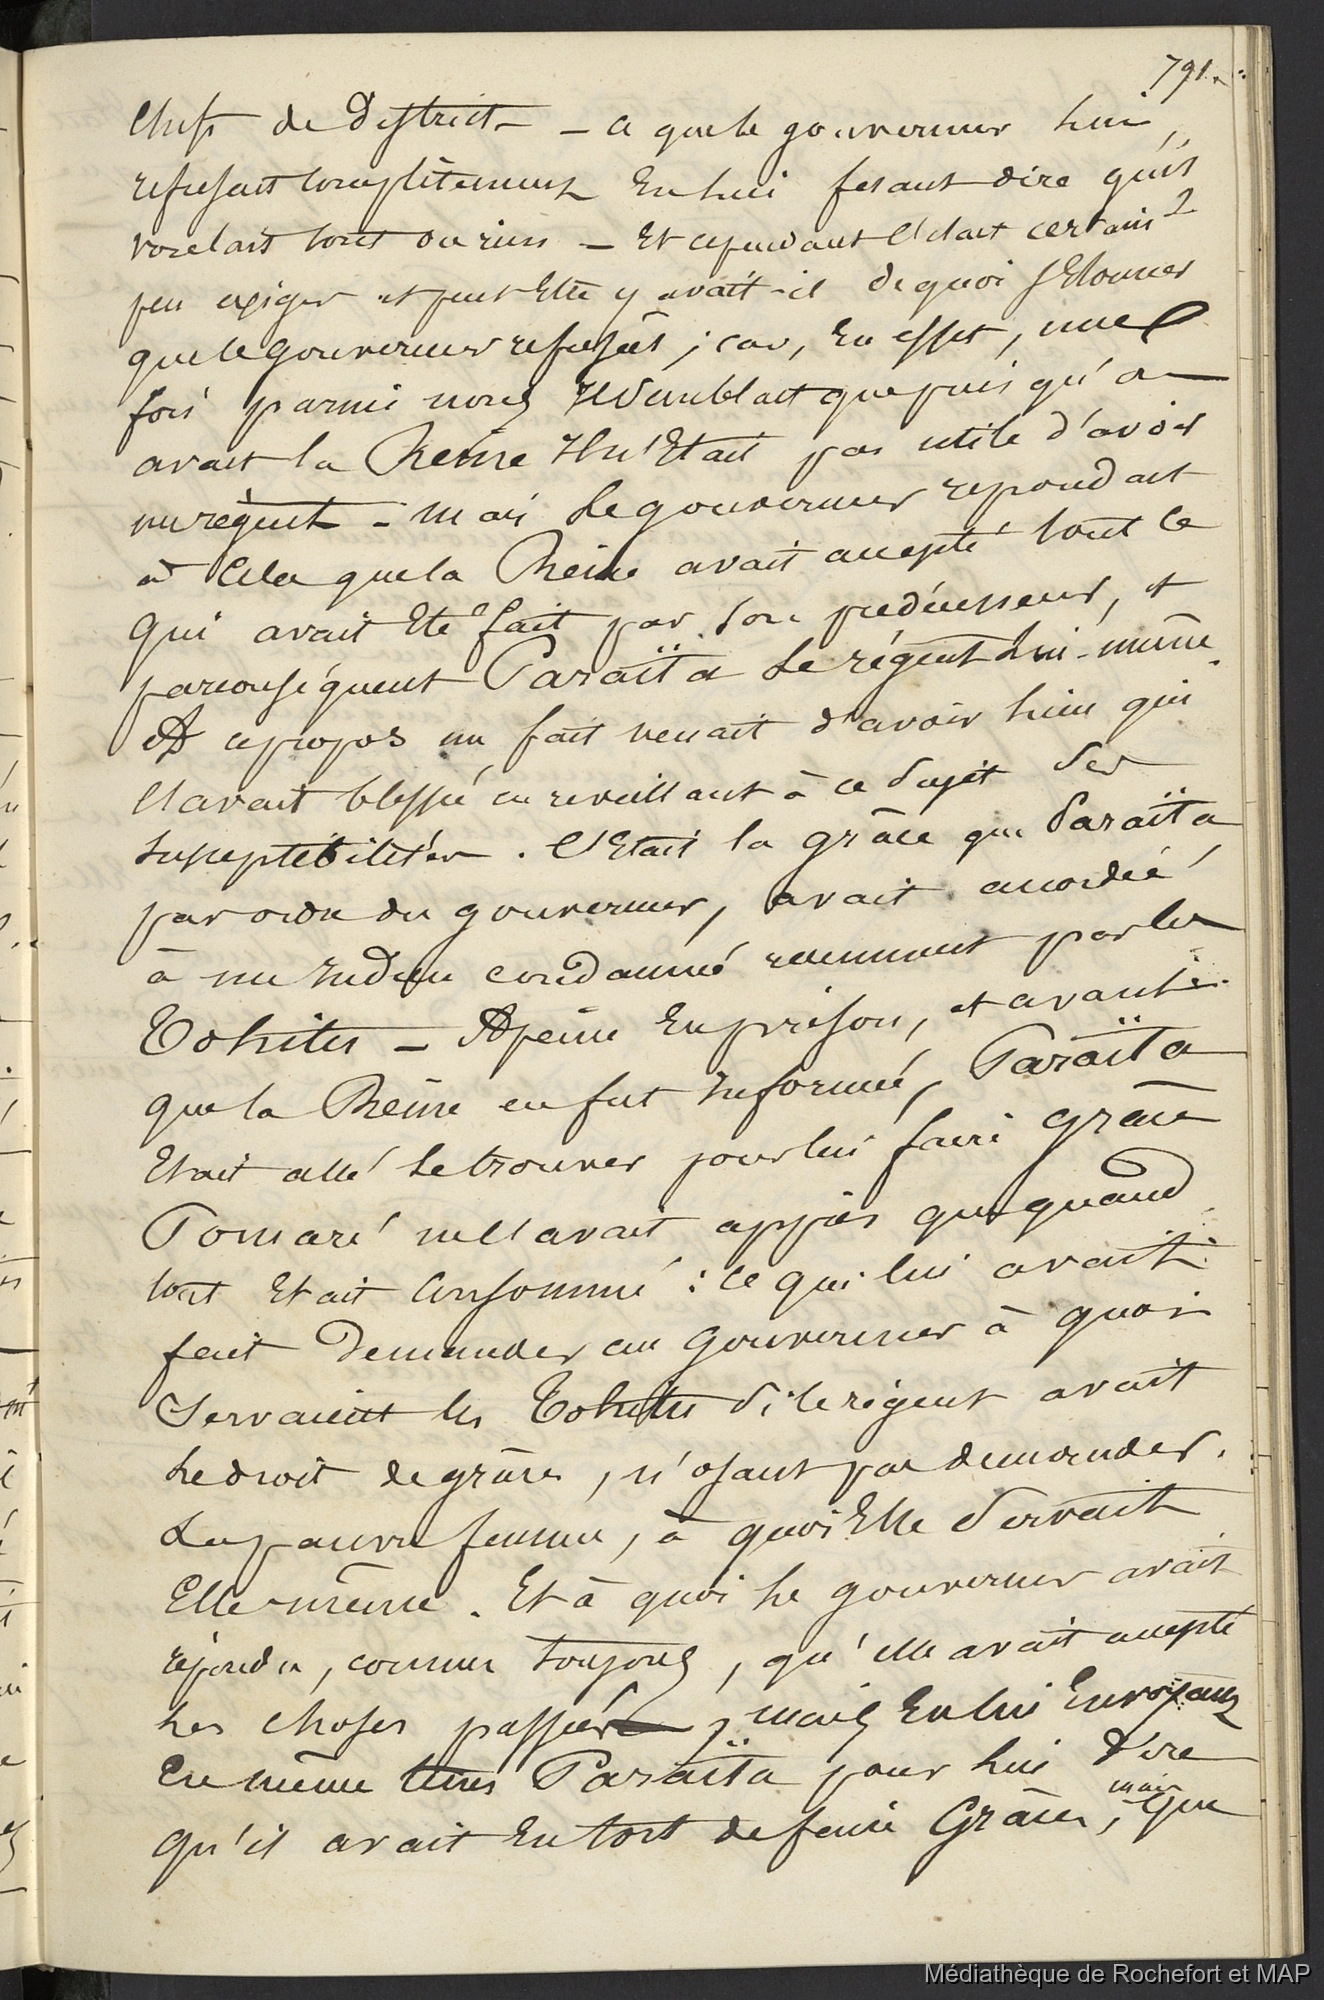 791.
Chefs de District - a que le gouverneur lui,
refusait complètement en lui fesant dire qu'il
voulait tout ou rien - Et cependant c'était certains
peu exiger et peut Etre y avait-il de quoi s'Etonner
que le gouverneur refusât ; car, En effet, une
fois parmi nous Il semblait que puis qu'on
avait la Reine Il n'Etait pas utile d'avoir
un régent - mais Le gouverneur repondait
à Cela que la Reine avait accepté tout ce
qui avait Eté fait par son prédécesseur, et
par conséquent Paraïta Le régent Lui-même.
A ce propos un fait venait d'avoir lieu qui
l'avait blessé en reveillant à ce sujet ses
susceptibilités. C'Etait la grâce que Paraïta
par ordre du gouverneur, avait accordée
à un Indien condamné recemment par les
Tohites - A peine En prison, et avant
que la Reine en fut Informée, Paraïta
Etait allé Le trouver pour lui faire grâce
Pomaré ne l'avait appris que quand
tout Etait Consommé : ce qui lui avait
fait Demander au Gouverneur à quoi
Servaient les Tohites si le régent avait
Le droit de grâces, n'osant pas demander.
La pauvre femme, à quoi Elle servait
Elle-même. Et à quoi Le gouverneur avait
répondu, comme toujours, qu'elle avait accepté
Les choses passées, mais En lui Envoyant
En même tems Paraïta pour Lui Dire
qu'il avait Eu tort de faire Grâces, mais que
Médiathèque de Rochefort et MAP